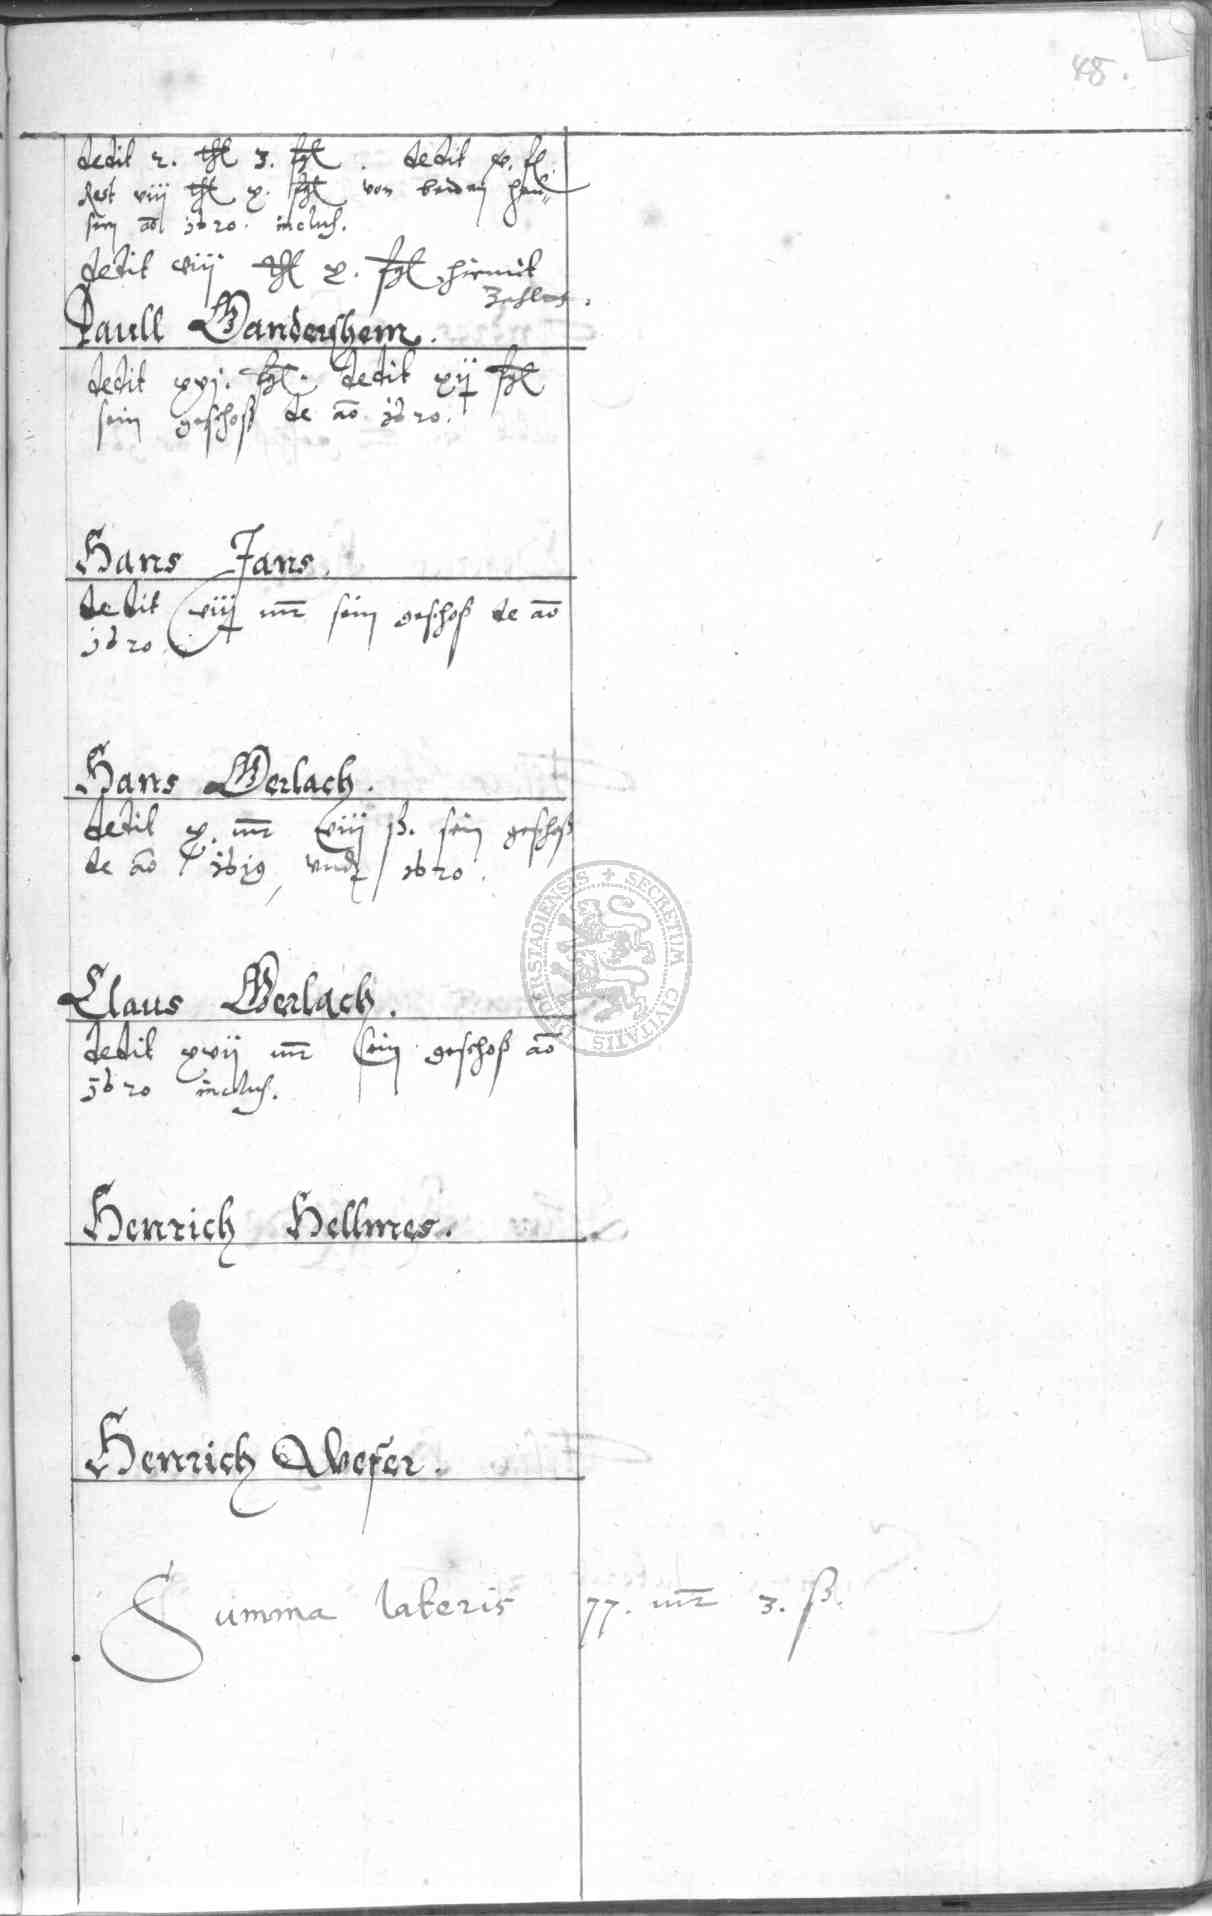 48.
dedit 2. thl 3. fgl. dedit x. fl.
Rest viij thl x. fgl von beiden heu-
sern ao 1620. inclus.
dedit viij thl x. fgl hirmit
zahlet.
Paull Gandershem.
dedit xvj. fgl. dedit xij fgl
sein geschoß de ao 1620.
Hans Jans.
dedit viij mr sein geschoß de ao
1620.
Hans Gerlach.
dedit x. mr viij ß. sein geschoß
de ao 1619 vnd 1620.
Claus Gerlach.
dedit xvij mr sein geschoß ao
1620 inclus.
Henrich Hellmes.
Henrich
Summa lateris 77. mr 3. ß.
SECRETUM CIVITATIS